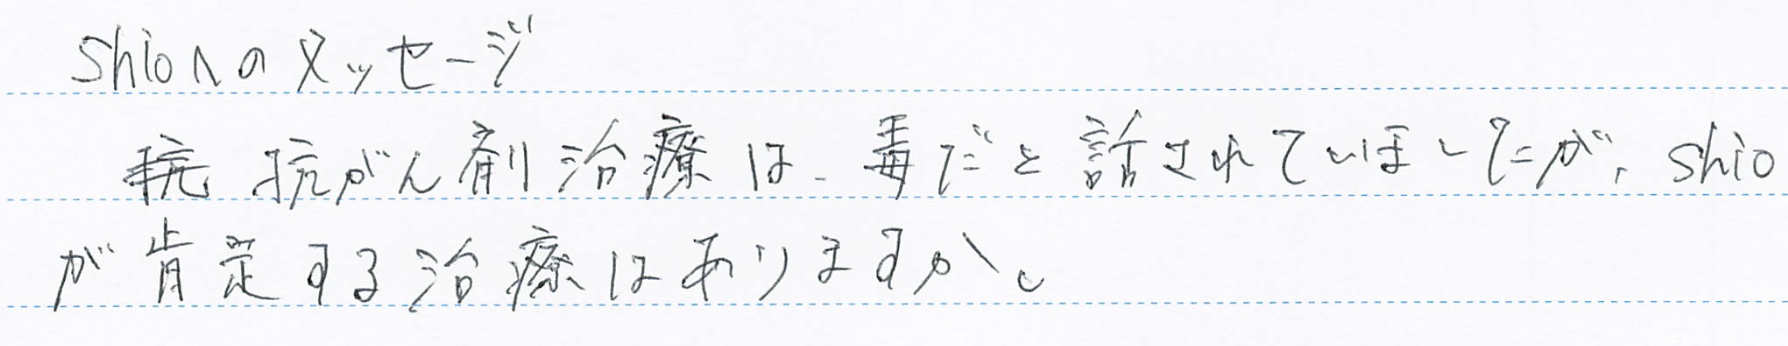 shioへのメッセージ
抗がん剤治療は、毒だと話されていましたが、shio
が肯定する治療はありますか。